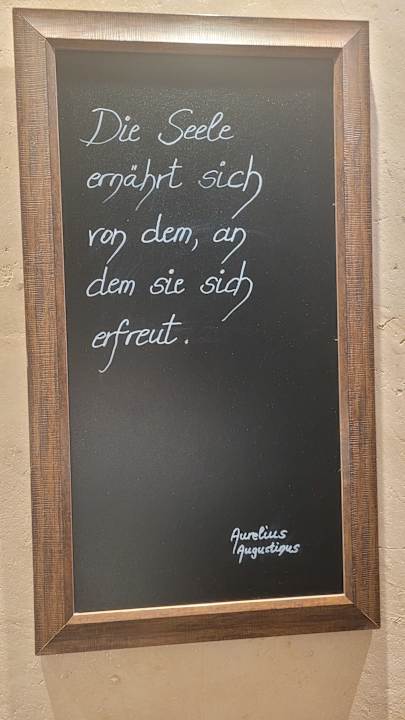 Die Seele
ernährt sich
von dem, an
dem sie sich
erfreut.
Aurelius
Augustinus